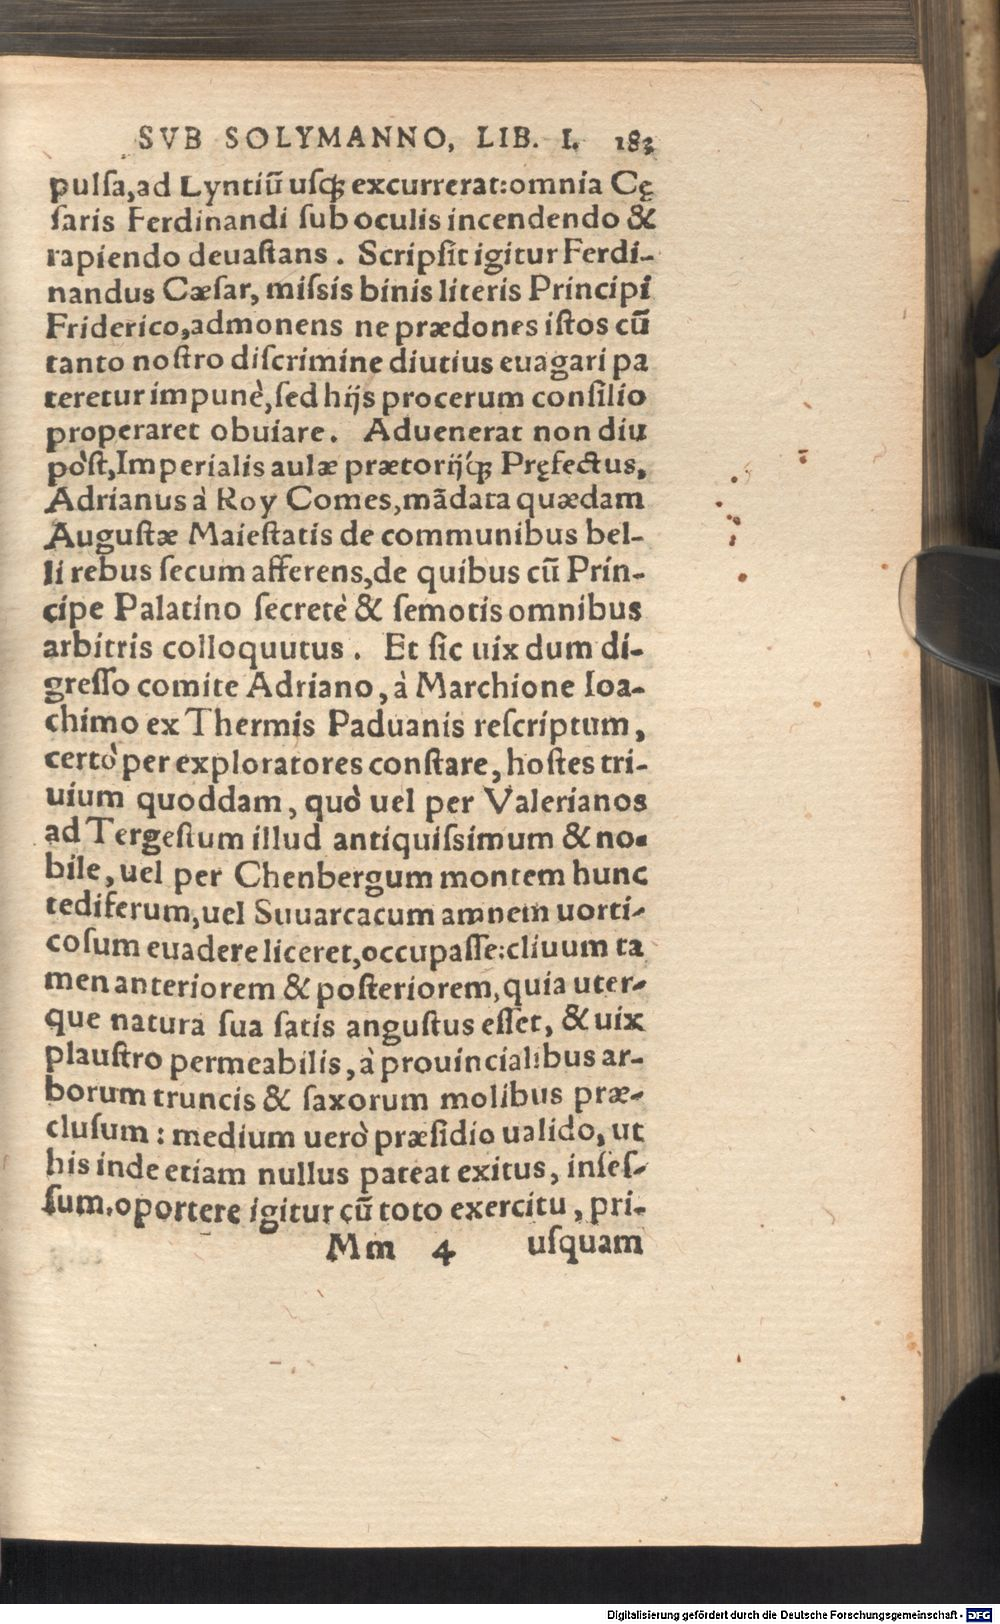 SVB SOLYMANNO, LIB. I. 183
pulsa,ad Lyntiū usq̃ excurrerat:omnia Cę
saris Ferdinandi sub oculis incendendo &
rapiendo deuastans. Scripsit igitur Ferdi-
nandus Cæsar, missis binis literis Principi
Friderico,admonens ne prædones istos cū
tanto nostro discrimine diutius euagari pa
teretur impunè,sed hijs procerum consilio
properaret obuiare. Aduenerat non diu
pòst,Imperialis aulæ prætorijq́ꝫ Pręfectus,
Adrianus à Roy Comes,mãdata quædam
Augustæ Maiestatis de communibus bel-
li rebus secum afferens,de quibus cū Prin-
cipe Palatino secretè & semotis omnibus
arbitris colloquutus. Et sic uix dum di-
gresso comite Adriano, à Marchione Ioa-
chimo ex Thermis Paduanis rescriptum,
certò per exploratores constare, hostes tri-
uium quoddam, quò uel per Valerianos
ad Tergestum illud antiquissimum & no-
bile, uel per Chenbergum montem hunc
tediferum,uel Suuarcacum amnem uorti-
cosum euadere liceret,occupasse:cliuum ta
men anteriorem & posteriorem, quia uter-
que natura sua satis angustus esset, & uix
plaustro permeabilis, à prouincialibus ar-
borum truncis & saxorum molibus præ-
clusum: medium uerò præsidio ualido, ut
his inde etiam nullus pateat exitus, inses-
sum.oportere igitur cū toto exercitu, pri-
Mm 4 usquam
Digitalisierung gefördert durch die Deutsche Forschungsgemeinschaft - DFG